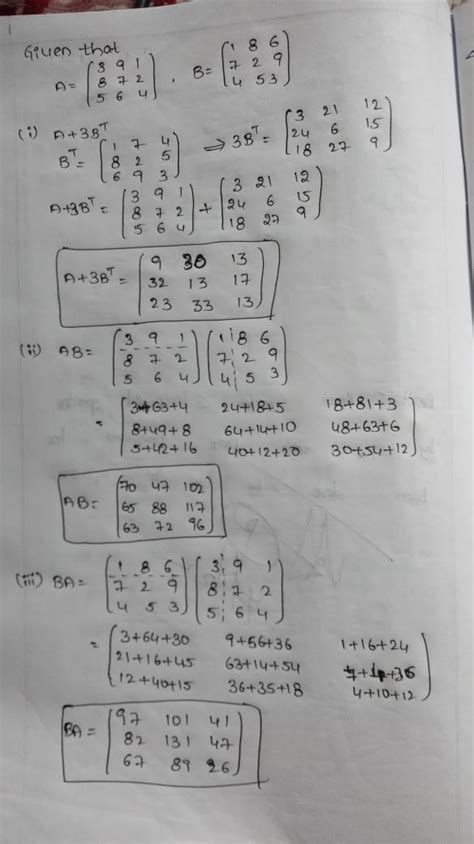 Given that
A = (3 9 1
8 7 2
5 6 4) , B = (1 8 6
7 2 9
4 5 3)
(i) A+3Bᵀ
Bᵀ = (1 7 4
8 2 5
6 9 3) ⇒ 3Bᵀ = (3 21 12
24 6 15
18 27 9)
A+3Bᵀ = (3 9 1
8 7 2
5 6 4) + (3 21 12
24 6 15
18 27 9)
A+3Bᵀ = (9 30 13
32 13 17
23 33 13)
(ii) AB = (3 9 1
8 7 2
5 6 4) (1 8 6
7 2 9
4 5 3)
= (3+63+4 24+18+5 18+81+3
8+49+8 64+14+10 48+63+6
5+42+16 40+12+20 30+54+12)
AB = (70 47 102
65 88 117
63 72 96)
(iii) BA = (1 8 6
7 2 9
4 5 3) (3 9 1
8 7 2
5 6 4)
= (3+64+30 9+56+36 1+16+24
21+16+45 63+14+54 7+4+36
12+40+15 36+35+18 4+10+12)
BA = (97 101 41
82 131 47
67 89 26)